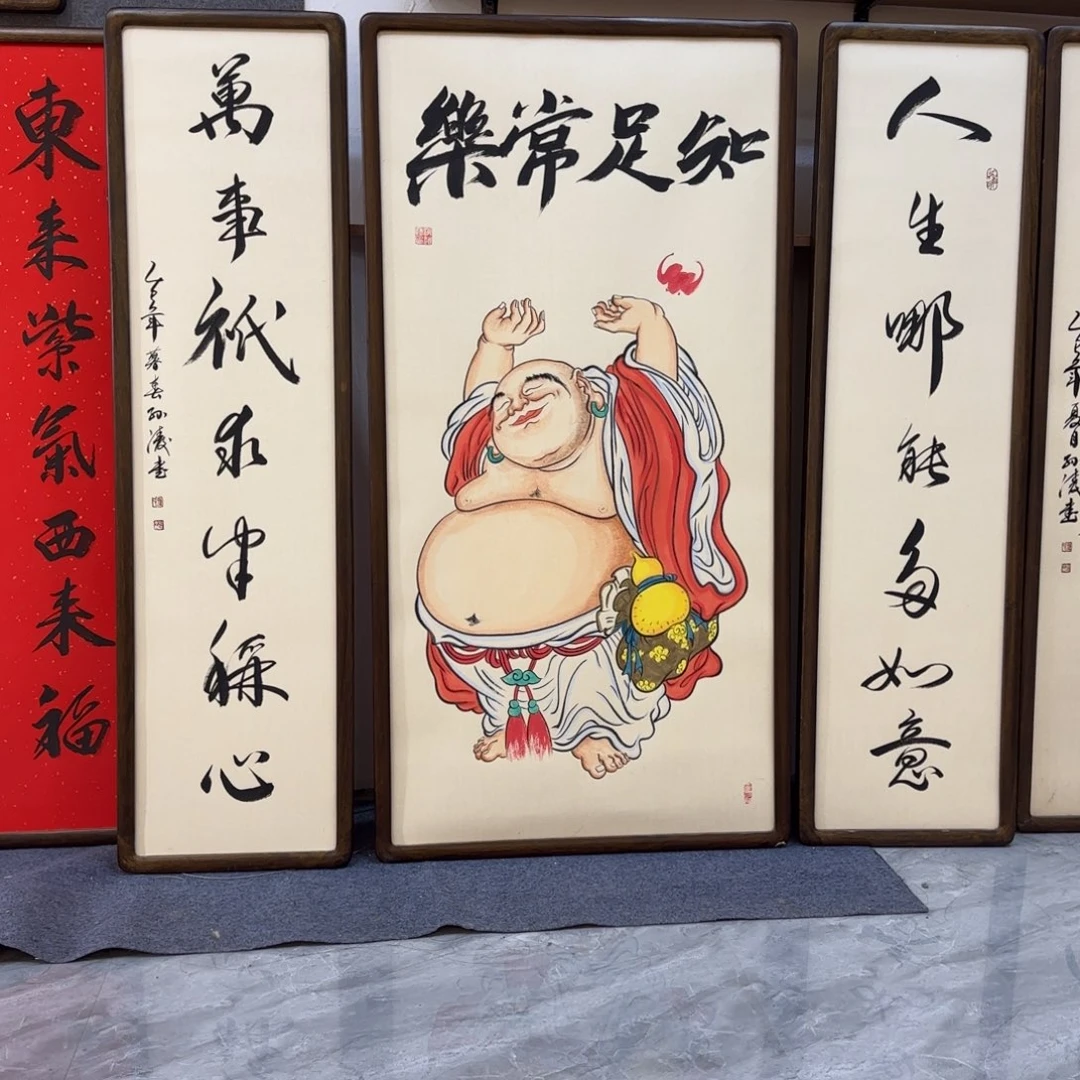 知足常樂
人生哪能多如意
萬事祇求半稱心
乙巳年暮春孙
東来紫氣西来福
乙巳年夏日孙